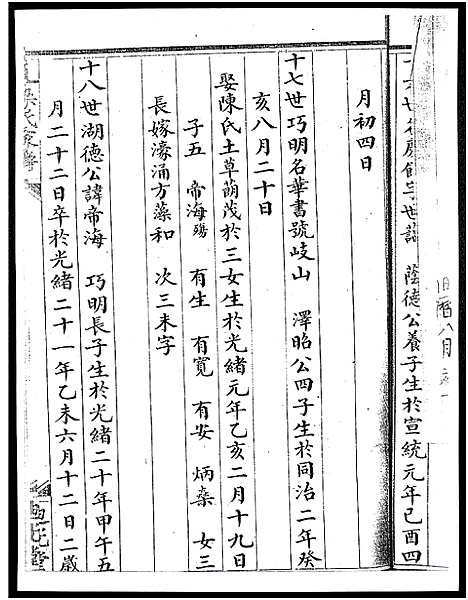 世 蔭德公養子生於宣統元年己酉四
月初四日
十七世巧明名華書號岐山 澤昭公四子生於同治二年癸
亥八月二十日
娶陳氏土草蓢茂於三女生於光緒元年乙亥二月十九日
子五 帝海殤 有生 有寬 有安 炳燊 女三
長嫁濠涌方藻和 次三未字
十八世湖德公諱帝海 巧明長子生於光緒二十年甲午五
月二十二日卒於光緒二十一年乙未六月十二日二歲
旧曆八月